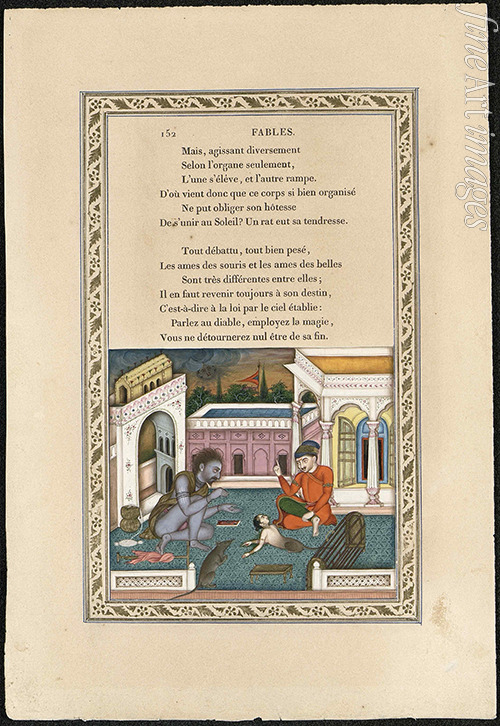 152 FABLES.
Mais, agissant diversement
Selon l'organe seulement,
L'une s'élève, et l'autre rampe.
D'où vient donc que ce corps si bien organisé
Ne put obliger son hôtesse
De s'unir au Soleil? Un rat eut sa tendresse.
Tout débattu, tout bien pesé,
Les ames des souris et les ames des belles
Sont très différentes entre elles;
Il en faut revenir toujours à son destin,
C'est-à-dire à la loi par le ciel établie:
Parlez au diable, employez la magie,
Vous ne détournerez nul être de sa fin.
fine art images